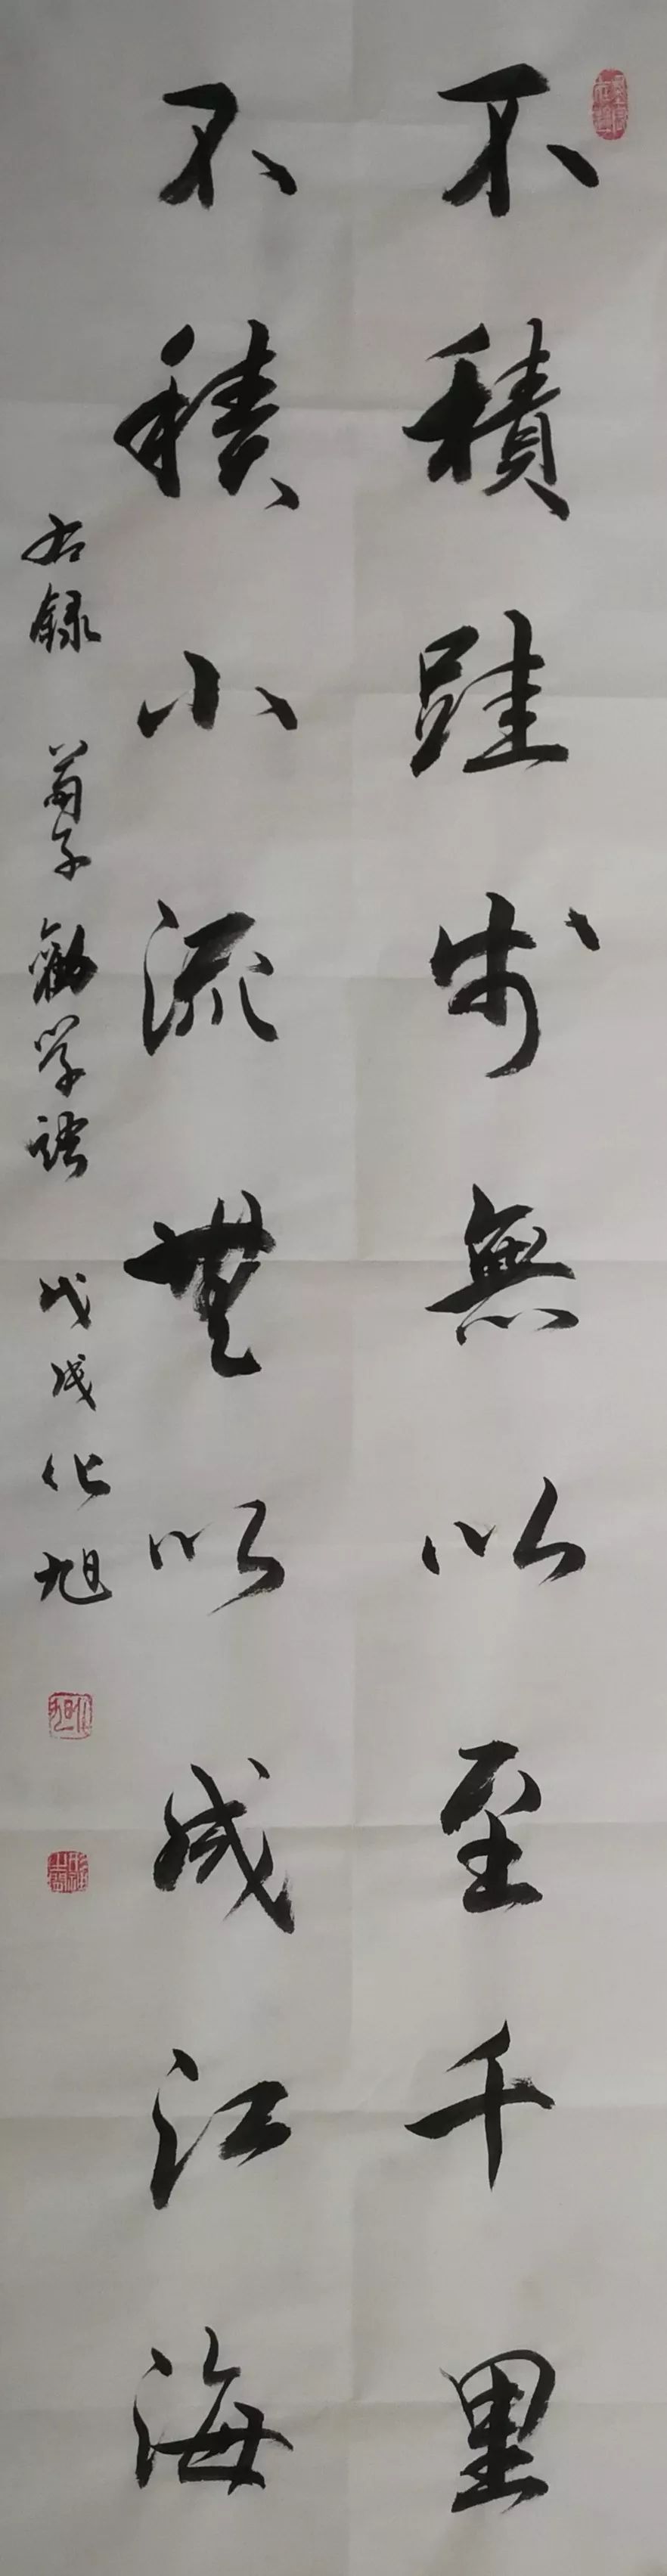 不積跬步無以至千里
不積小流無以成江海
右録 荀子 勸学語 戊戌 化旭